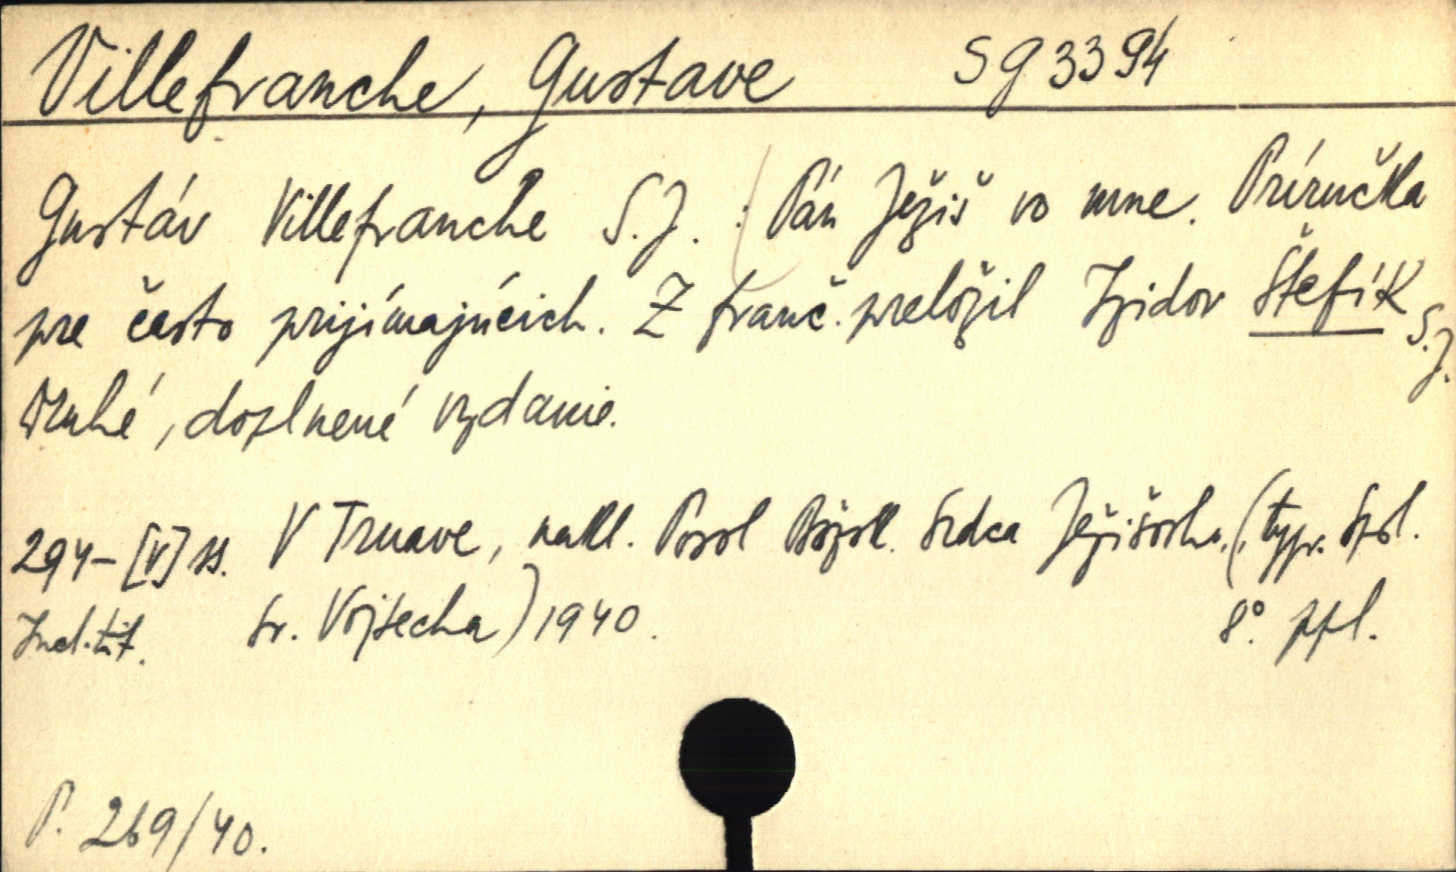 Villefranche, Gustave SG 3394
Gustáv Villefranche S.J. : Pán Ježiš vo mne. Príručka
pre často prijímajúcich. Z franč. preložil Izidor Štefík S.J.
Druhé, doplnené vydanie.
294-[V] ss. V Trnave, nakl. Posol Božsk. Srdca Ježišovho, (typ. Spol.
Incl. tit. sv. Vojtecha) 1940. 8° ppl.
P. 269/40.